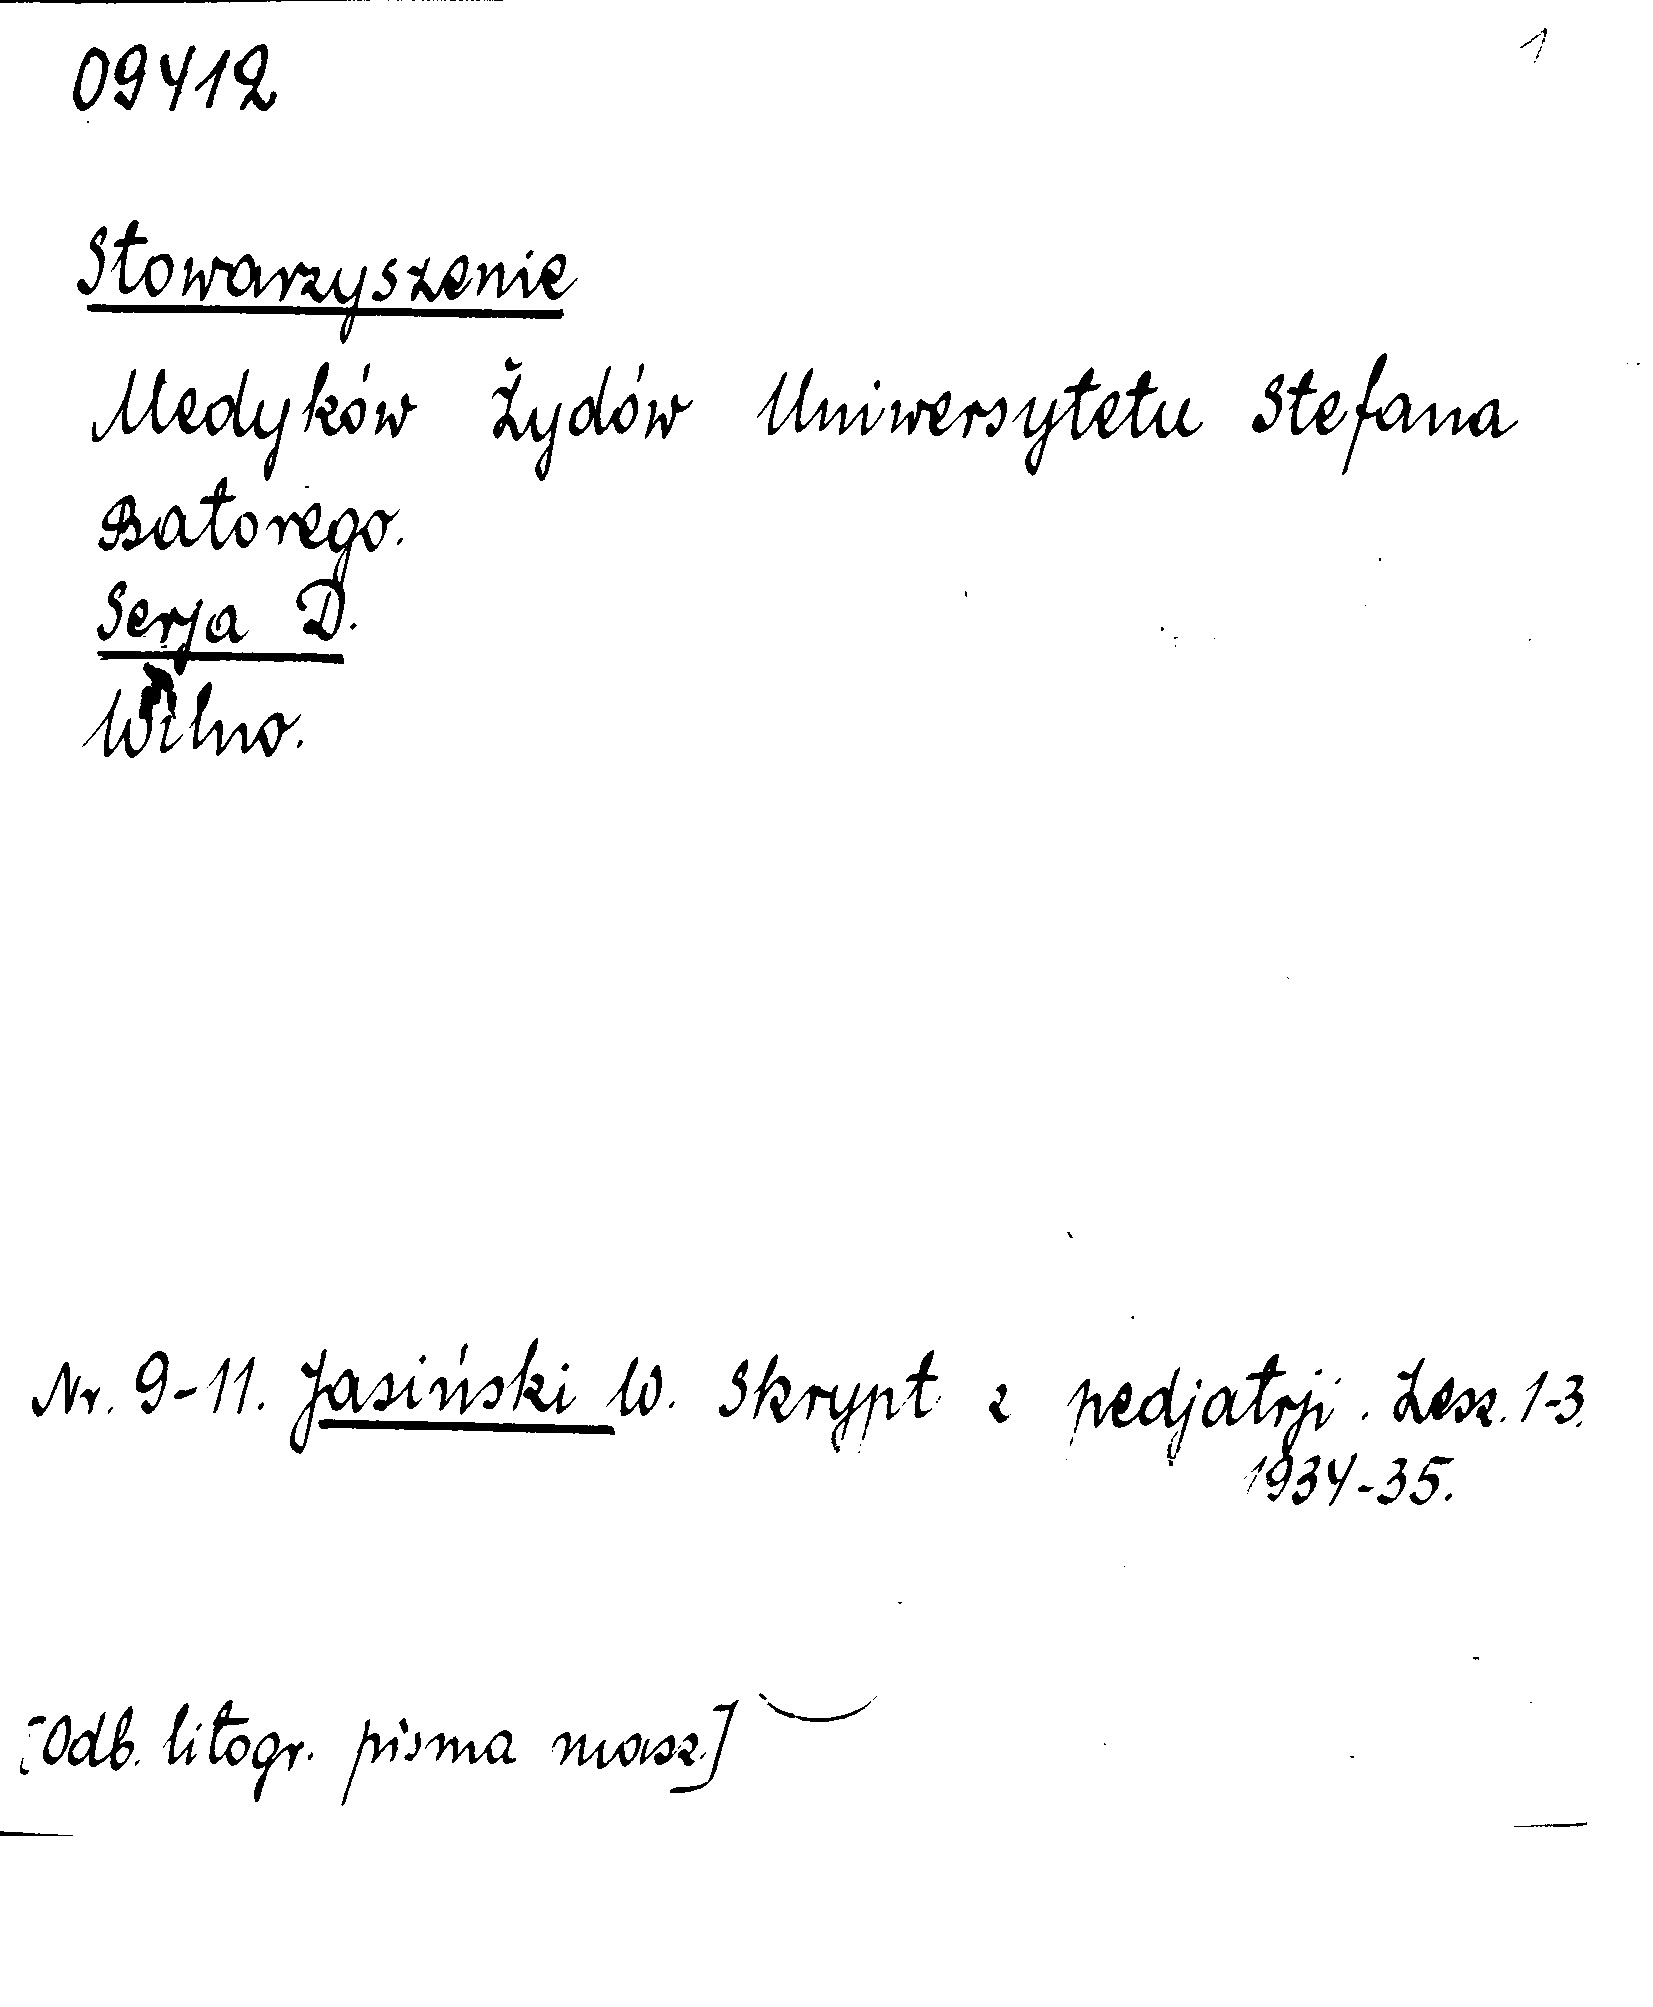 09412
1
Stowarzyszenie
Medyków Żydów Uniwersytetu Stefana
Batorego.
Serja D.
Wilno.
Nr. 9-11. Jasiński W. Skrypt z pedjatrji. Zesz. 1-3.
1934-35.
[Odb. litogr. pisma masz.]